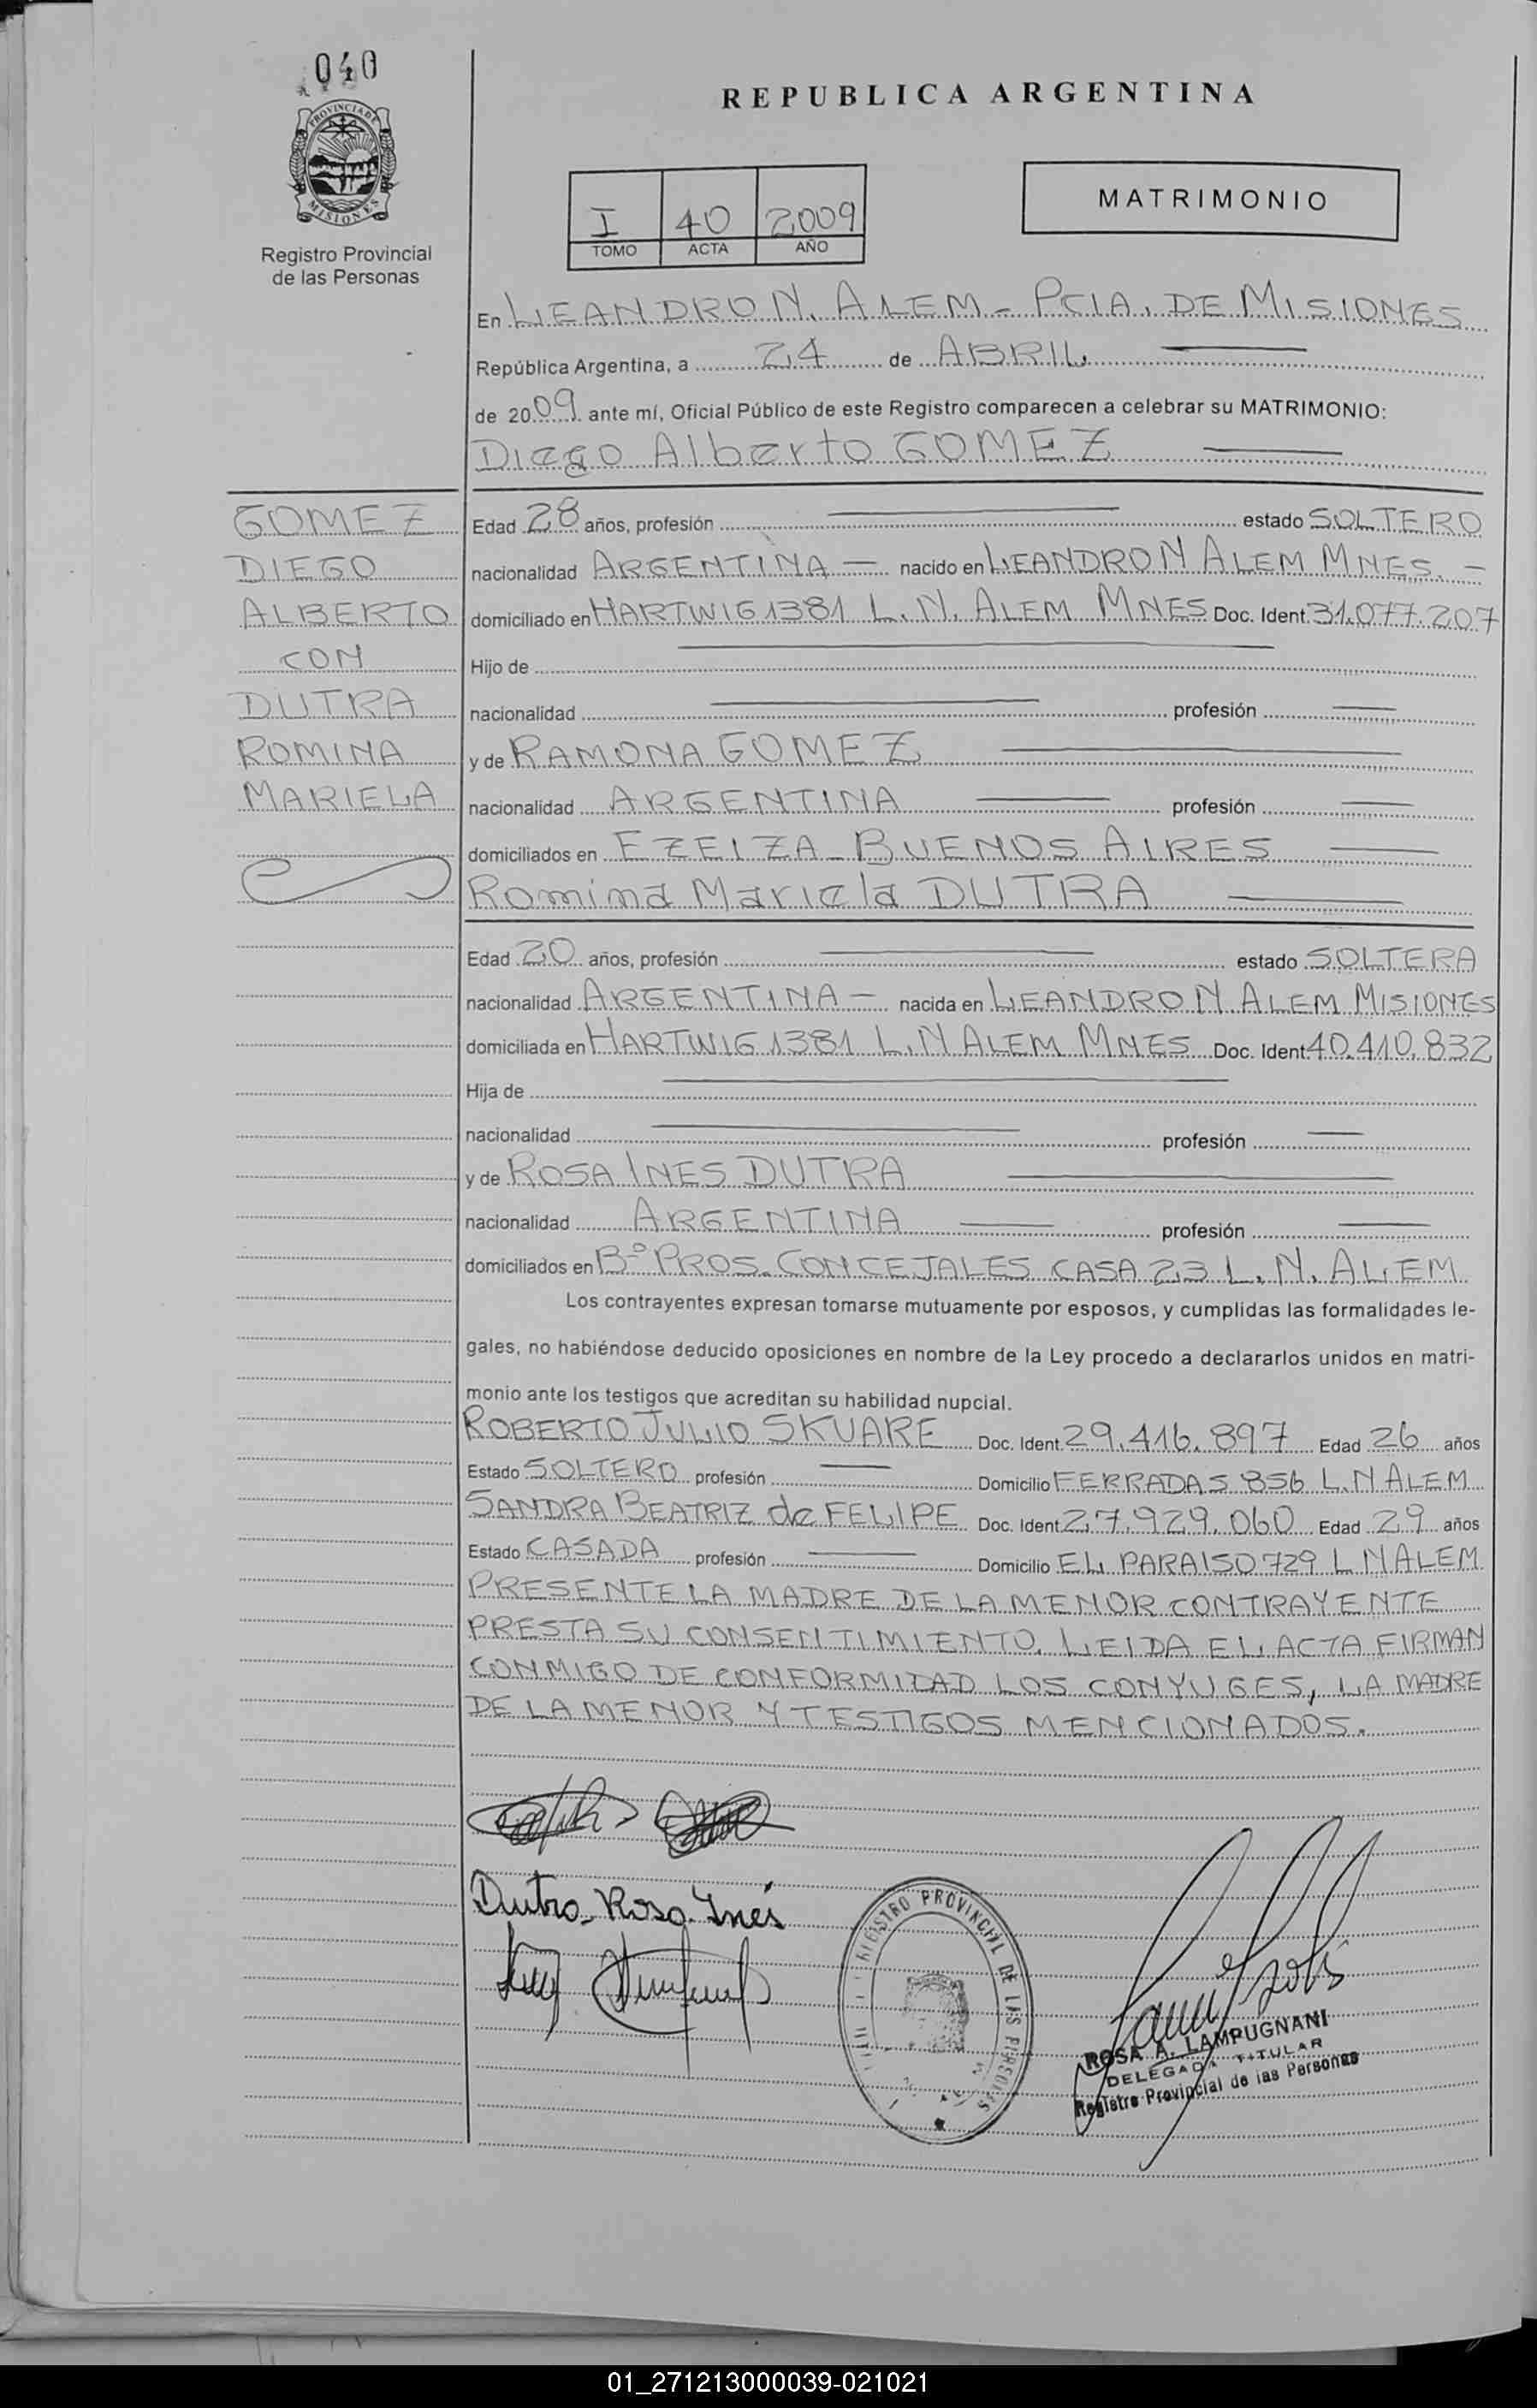 040
PROVINCIA DE
MISIONES
Registro Provincial
de las Personas
REPUBLICA ARGENTINA
I 40 2009
TOMO ACTA AÑO
MATRIMONIO
En LEANDRO N. ALEM - PCIA. DE MISIONES
República Argentina, a 24 de ABRIL
de 2009 ante mí, Oficial Público de este Registro comparecen a celebrar su MATRIMONIO:
Diego Alberto GOMEZ
GOMEZ
DIEGO
ALBERTO
CON
DUTRA
ROMINA
MARIELA
Edad 28 años, profesión estado SOLTERO
nacionalidad ARGENTINA — nacido en LEANDRO N ALEM MNES. —
domiciliado en HARTWIG 1381 L. N. ALEM MNES Doc. Ident. 31.077.207
Hijo de
nacionalidad profesión
y de RAMONA GOMEZ
nacionalidad ARGENTINA profesión
domiciliados en EZEIZA - BUENOS AIRES
Romina Mariela DUTRA
Edad 20 años, profesión estado SOLTERA
nacionalidad ARGENTINA — nacida en LEANDRO N. ALEM MISIONES
domiciliada en HARTWIG 1381 L. N ALEM MNES Doc. Ident. 40.410.832
Hija de
nacionalidad profesión
y de ROSA INES DUTRA
nacionalidad ARGENTINA profesión
domiciliados en Bº PROS. CONCEJALES CASA 23 L. N. ALEM
Los contrayentes expresan tomarse mutuamente por esposos, y cumplidas las formalidades le-
gales, no habiéndose deducido oposiciones en nombre de la Ley procedo a declararlos unidos en matri-
monio ante los testigos que acreditan su habilidad nupcial.
ROBERTO JULIO SKUARE Doc. Ident. 29.416.897 Edad 26 años
Estado SOLTERO profesión Domicilio FERRADAS 856 L.N ALEM
SANDRA BEATRIZ de FELIPE Doc. Ident 27.929.060 Edad 29 años
Estado CASADA profesión Domicilio EL PARAISO 729 L N ALEM
PRESENTE LA MADRE DE LA MENOR CONTRAYENTE
PRESTA SU CONSENTIMIENTO. LEIDA EL ACTA FIRMAN
CONMIGO DE CONFORMIDAD LOS CONYUGES, LA MADRE
DE LA MENOR Y TESTIGOS MENCIONADOS.
Dutra Rosa Inés
REGISTRO PROVINCIAL DE LAS PERSONAS
ROSA A. LAMPUGNANI
DELEGADA TITULAR
Registro Provincial de las Personas
01_271213000039-021021